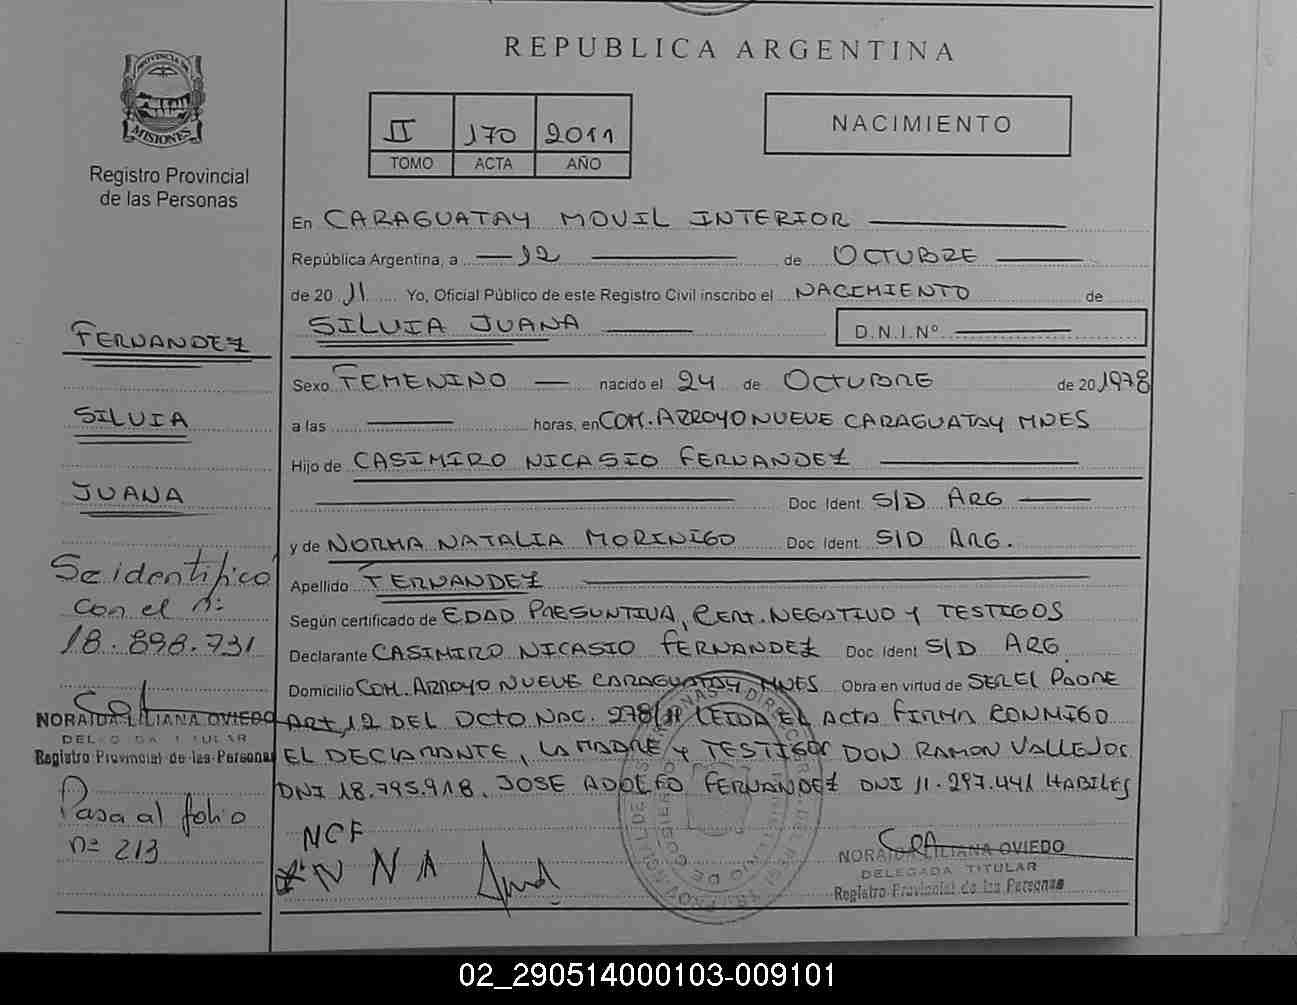 REPUBLICA ARGENTINA
PROVINCIA DE
MISIONES
Registro Provincial
de las Personas
II 170 2011
TOMO ACTA AÑO
NACIMIENTO
En CARAGUATAY MOVIL INTERIOR
República Argentina, a 12 de OCTUBRE
de 20 11 Yo, Oficial Público de este Registro Civil inscribo el NACIMIENTO de
SILVIA JUANA D.N.I.Nº
FERNANDEZ
SILVIA
JUANA
Sexo FEMENINO nacido el 24 de OCTUBRE de 20 1978
a las horas, en COM. ARROYO NUEVE CARAGUATAY MNES
Hijo de CASIMIRO NICASIO FERNANDEZ
Doc Ident S/D ARG
y de NORMA NATALIA MORINIGO Doc Ident S/D ARG.
Apellido FERNANDEZ
Según certificado de EDAD PRESUNTIVA, CERT. NEGATIVO Y TESTIGOS
Declarante CASIMIRO NICASIO FERNANDEZ Doc Ident S/D ARG.
Domicilio COM. ARROYO NUEVE CARAGUATAY MNES Obra en virtud de SER EL PADRE
ART, 12 DEL DCTO NAC. 278/11 LEIDA EL ACTA FIRMA CONMIGO
EL DECLARANTE, LA MADRE Y TESTIGOS DON RAMON VALLEJOS
DNI 18.795.918. JOSE ADOLFO FERNANDEZ DNI 11.297.441 HABILES
Se identificó
con el nº:
18.898.731
NORAIDA LILIANA OVIEDO
DELEGADA TITULAR
Registro Provincial de las Personas
Pasa al folio
nº 213
NCF
N N A
NORAIDA LILIANA OVIEDO
DELEGADA TITULAR
Registro Provincial de las Personas
02_290514000103-009101